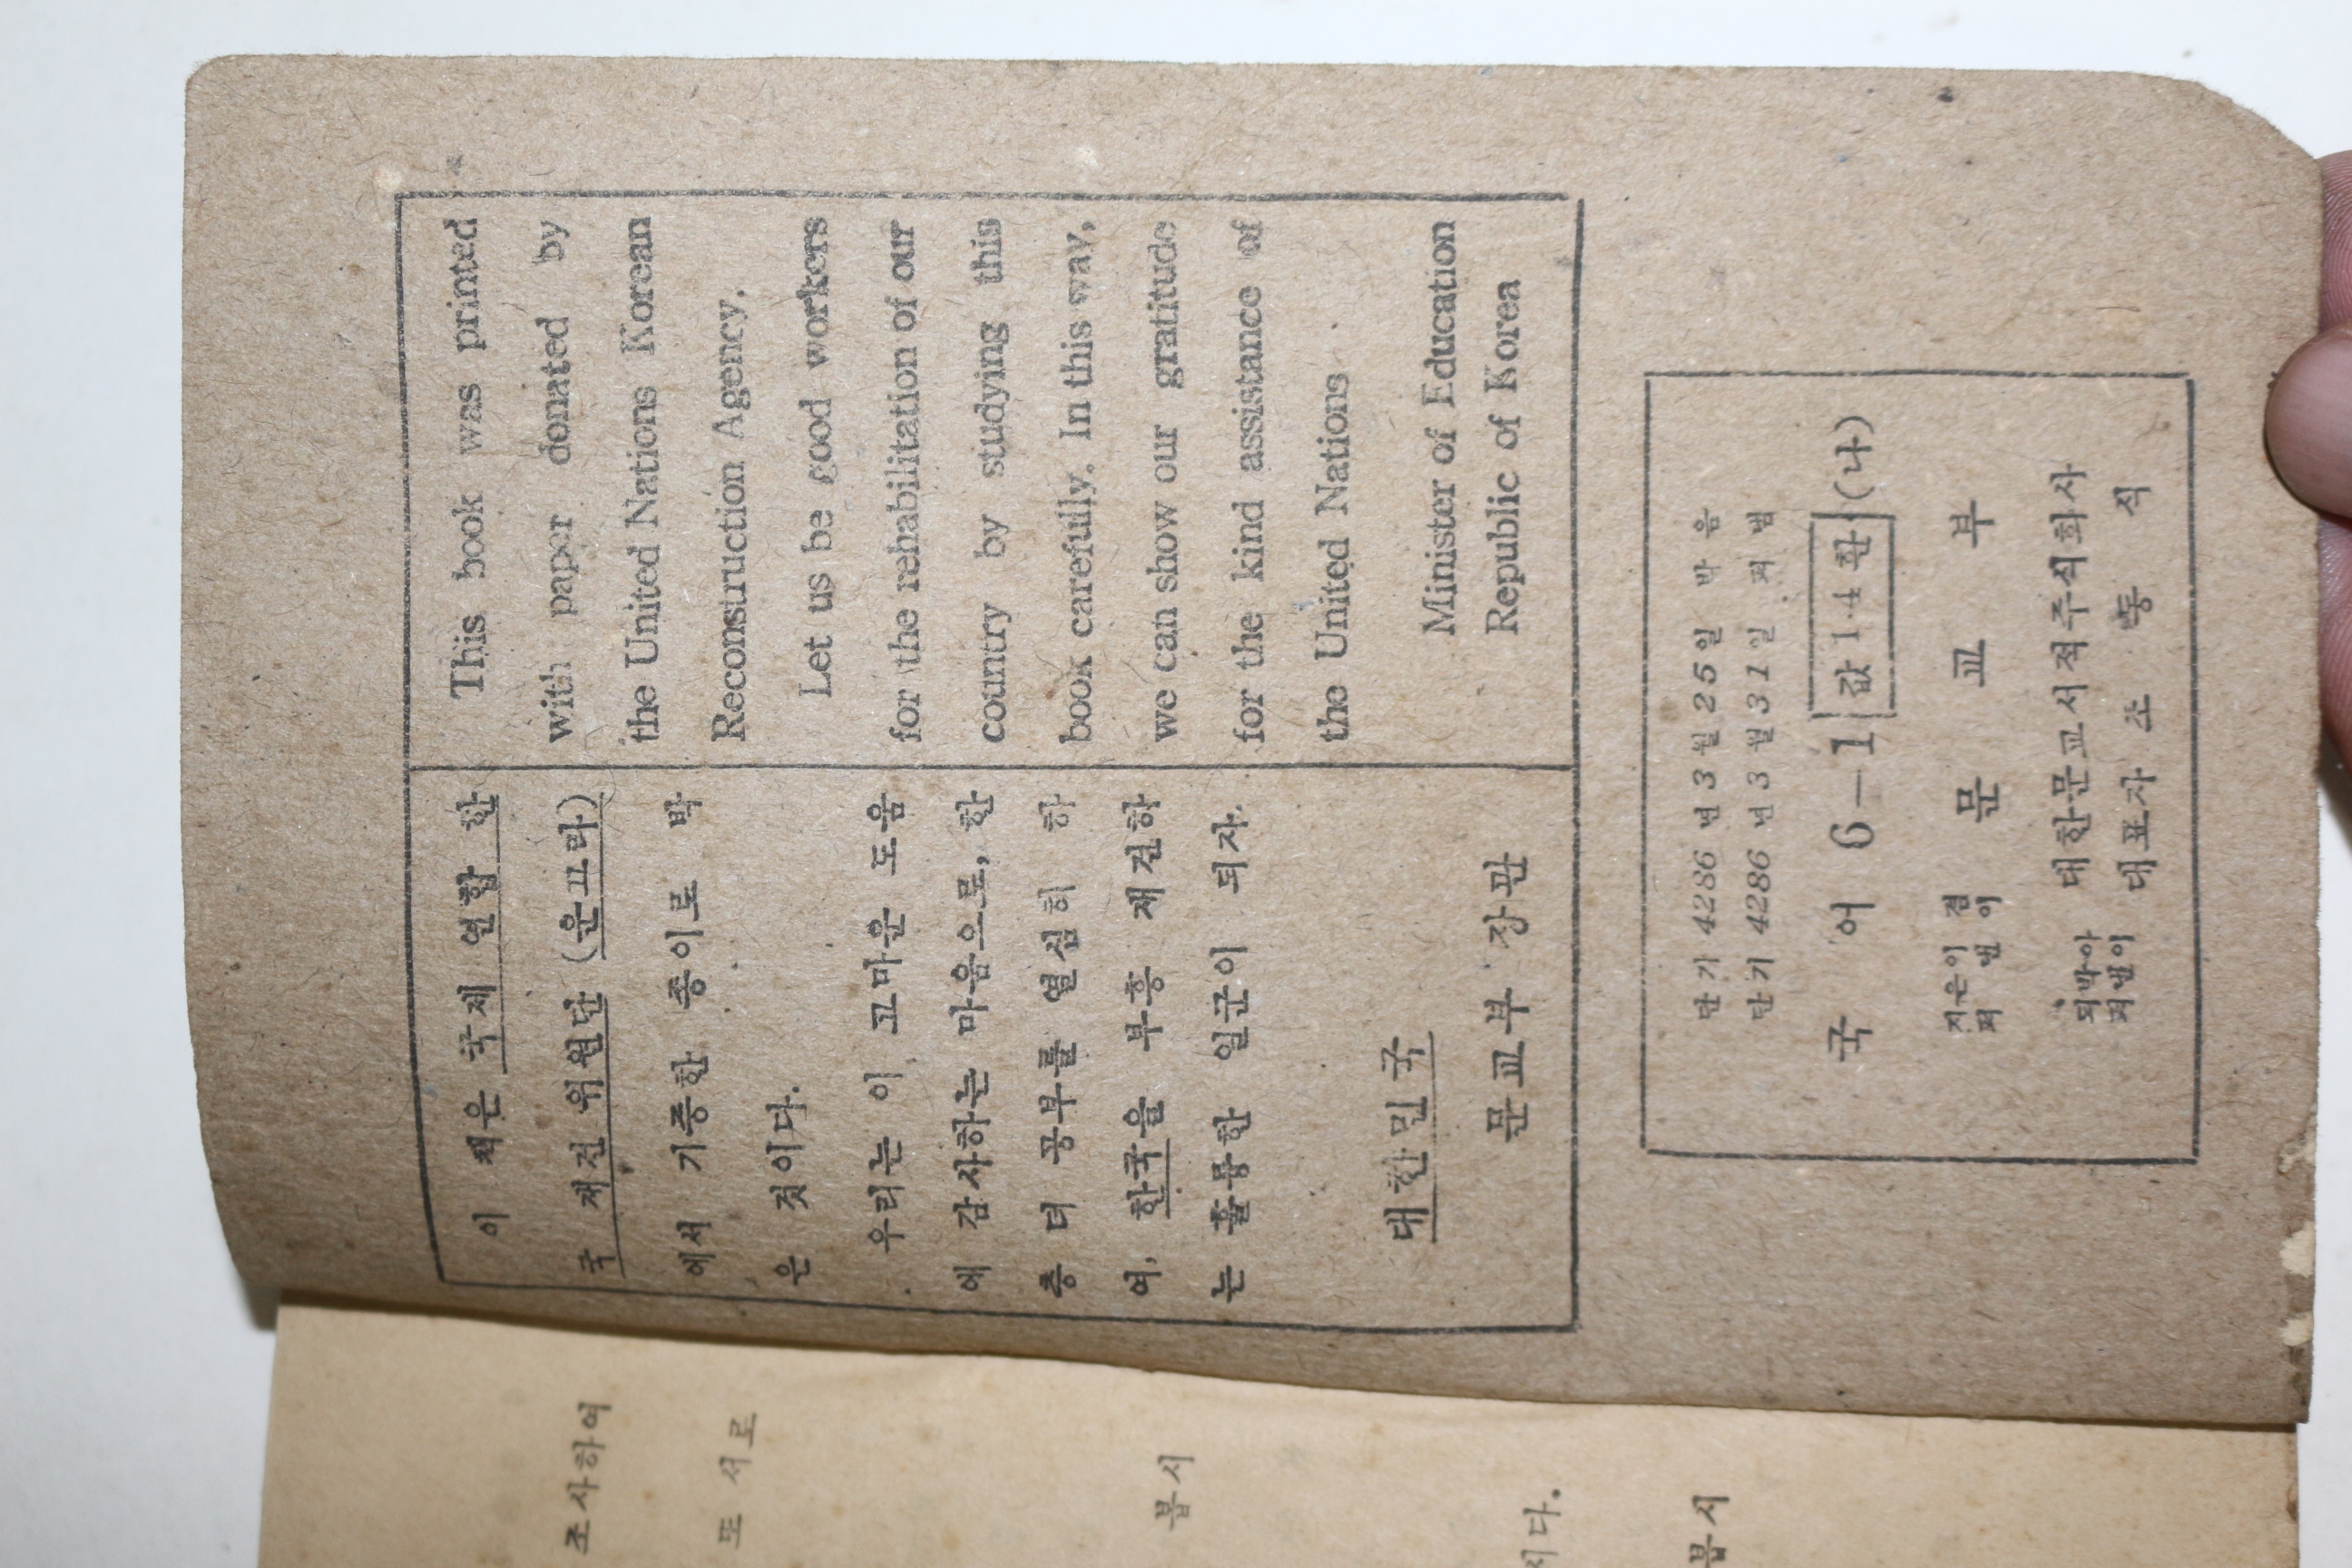 조사하여
또 서로
봅시
시다.
봅시
이 책은 국제 연합 한
국 재건 위원단 (운끄라)
에서 기증한 종이로 박
은 것이다.
우리는 이 고마운 도움
에 감사하는 마음으로, 한
층 더 공부를 열심히 하
여, 한국을 부흥 재건하
는 훌륭한 일군이 되자.
대한민국
문교부 장관
This book was printed
with paper donated by
the United Nations Korean
Reconstruction Agency.
Let us be good workers
for the rehabilitation of our
country by studying this
book carefully. In this way,
we can show our gratitude
for the kind assistance of
the United Nations
Minister of Education
Republic of Korea
단기 4286 년 3 월 25 일 박음
단기 4286 년 3 월 31 일 펴냄
국 어 6-1 값 14 환 (나)
지은이 겸
펴 낸 이
문 교 부
되박아
펴낸이
대한문교서적주식회사
대표자 조 동 식